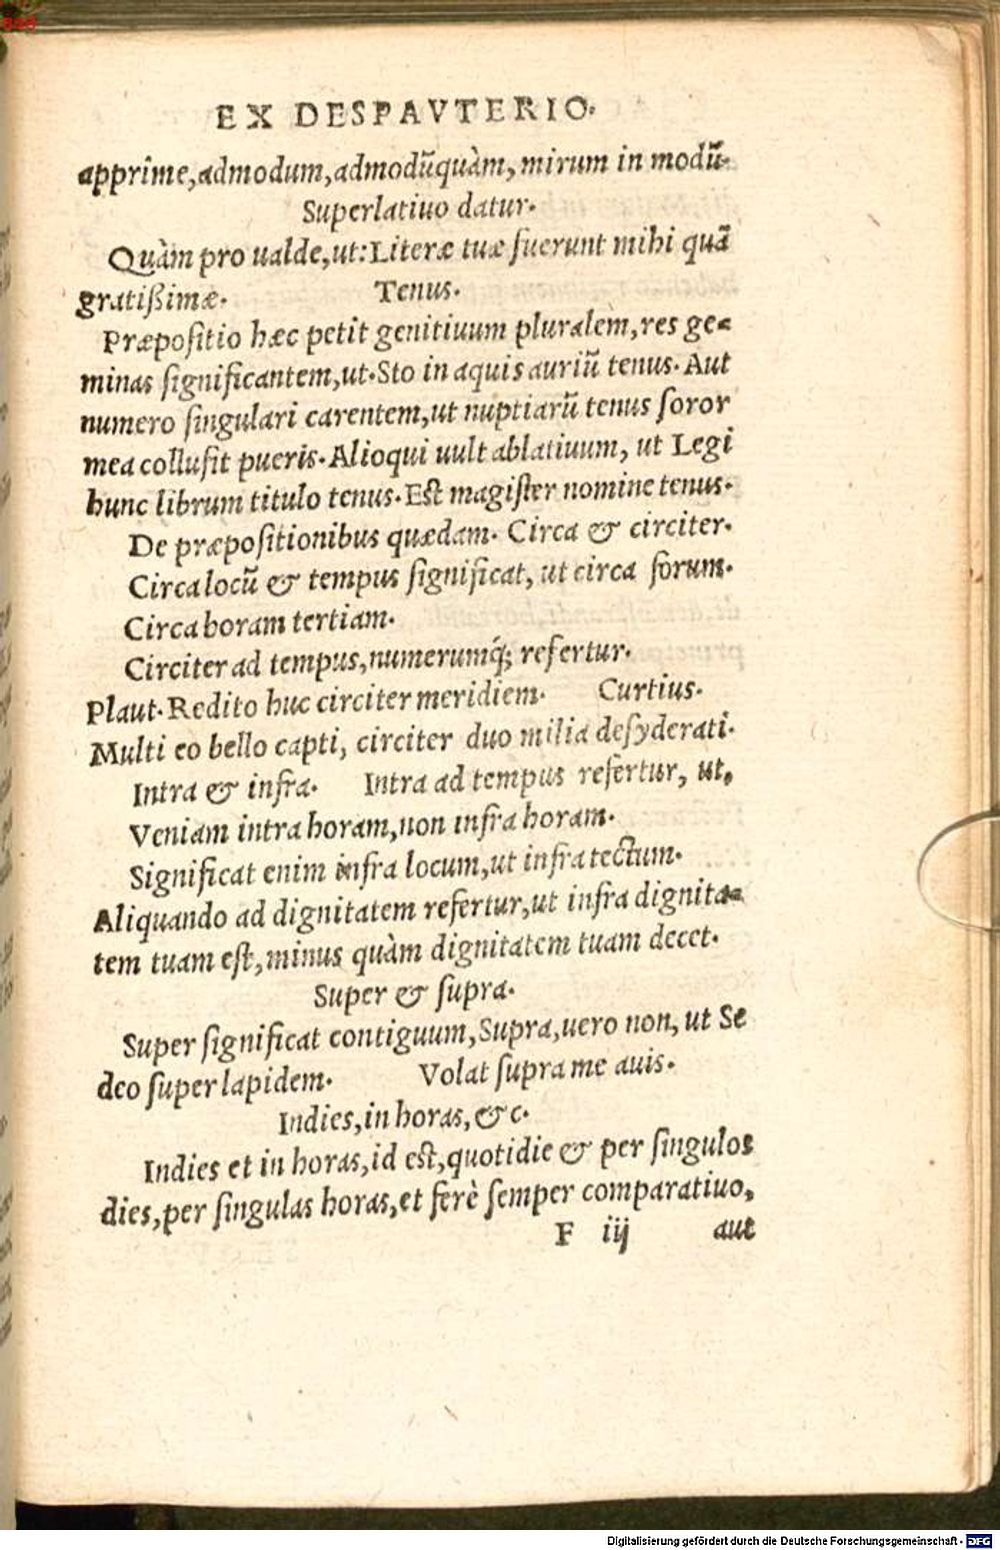 EX DESPAVTERIO.
apprime, admodum, admodũquàm, mirum in modũ.
Superlatiuo datur.
Quàm pro ualde, ut: Literæ tuæ fuerunt mihi quã
gratißimæ. Tenus.
Præpositio hæc petit genitiuum pluralem, res ge=
minas significantem, ut. Sto in aquis auriũ tenus. Aut
numero singulari carentem, ut nuptiarũ tenus soror
mea collusit pueris. Alioqui uult ablatiuum, ut Legi
hunc librum titulo tenus. Est magister nomine tenus.
De præpositionibus quædam. Circa & circiter.
Circa locũ & tempus significat, ut circa forum.
Circa horam tertiam.
Circiter ad tempus, numerumq́; refertur.
Plaut. Redito huc circiter meridiem. Curtius.
Multi eo bello capti, circiter duo milia desyderati.
Intra & infra. Intra ad tempus refertur, ut,
Veniam intra horam, non infra horam.
Significat enim infra locum, ut infra tectum.
Aliquando ad dignitatem refertur, ut infra dignita=
tem tuam est, minus quàm dignitatem tuam decet.
Super & supra.
Super significat contiguum, Supra, uero non, ut Se
deo super lapidem. Volat supra me auis.
Indies, in horas, &c.
Indies et in horas, id est, quotidie & per singulos
dies, per singulas horas, et ferè semper comparatiuo,
F iij aut
Digitalisierung gefördert durch die Deutsche Forschungsgemeinschaft - DFG